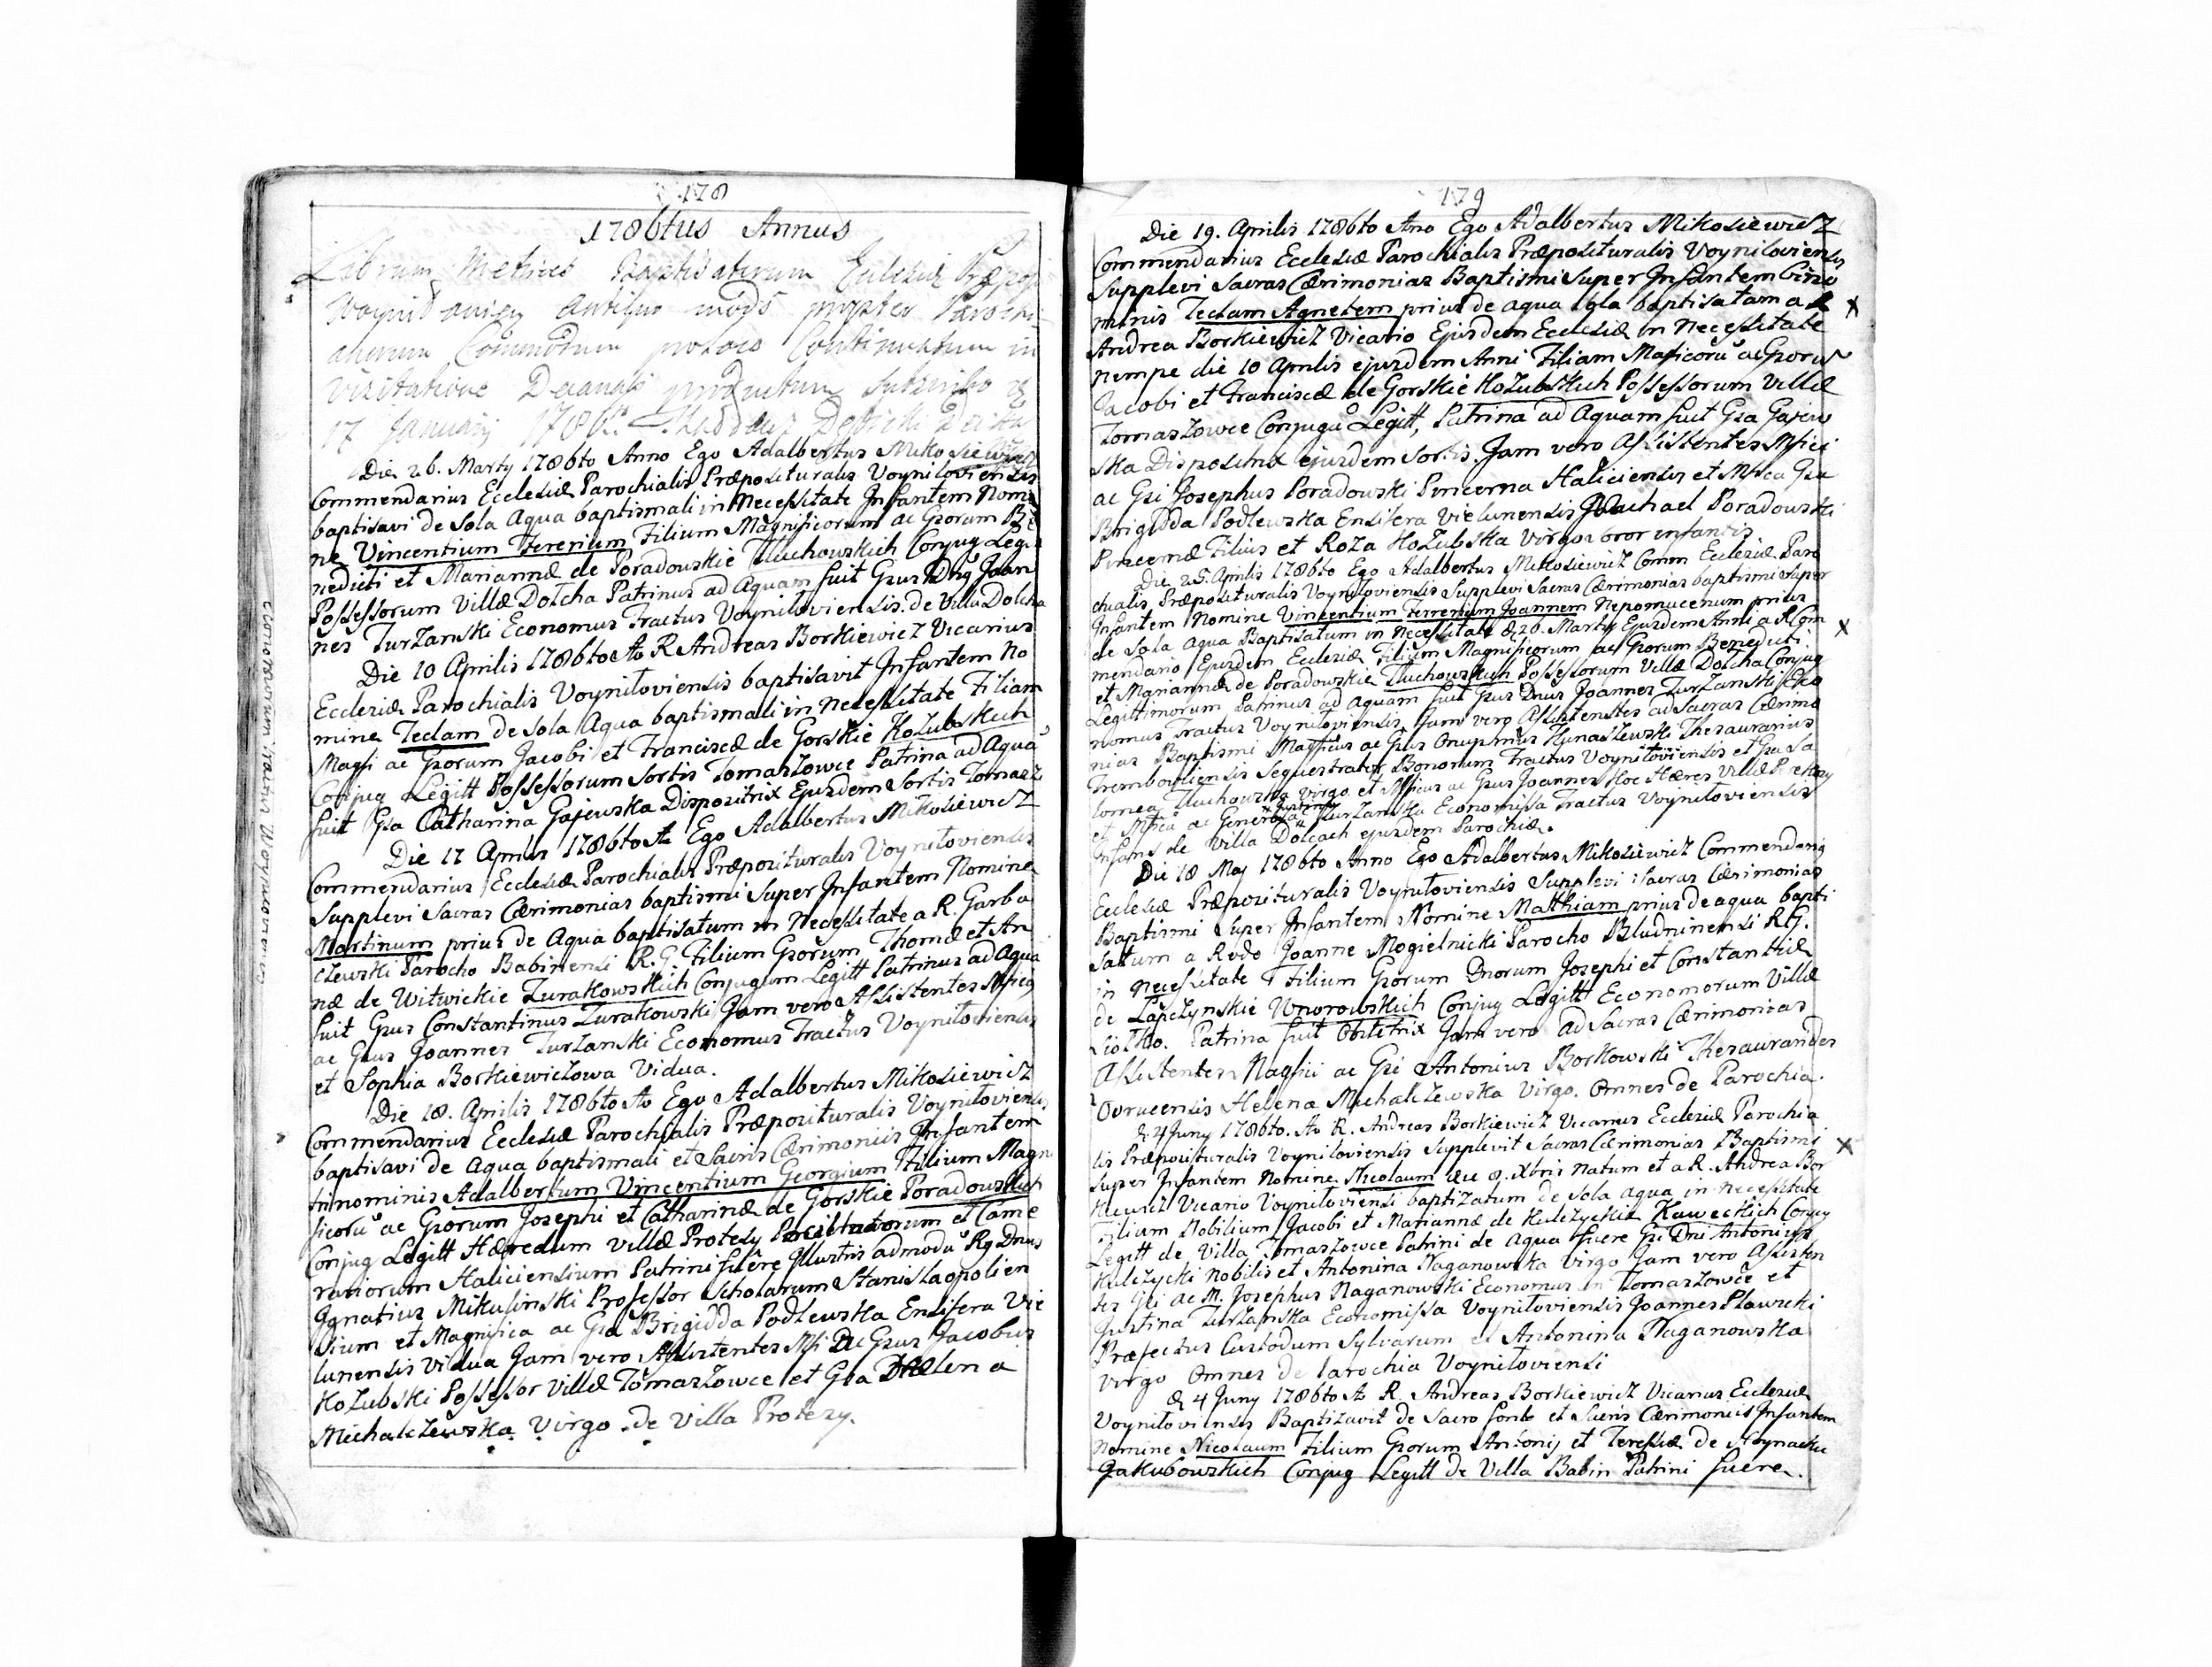 178
1786tus Annus
Librum Metrices Baptisatorum Ecclesiæ Præpos
antiquo modo propter Parochi
anorum Commodum Continuatum in
Visitatione Decanali productum Subscribo d.
17 January 1786. Thaddeus
Die 26. Marty 1786to Anno Ego Adalbertus Mikosiewicz
Commendarius Ecclesiæ Parochialis Præposituralis Voyniloviensis
baptisavi de Sola Aqua baptismali in Necessitate Infantem Nomi
ne Vincentium Fererium Filium Magnificorum ac Grorum Be
nedicti et Mariannæ de Poradowskie Tluchowskich Conjug Legit
Possessorum Villæ Dolcha Patrinus ad Aquam fuit Grsus Dng Joan
nes Turzanski Economus Tractus Voyniloviensis. de Villa Dolcha
Die 10 Aprilis 1786to Ao R Andreas Borkiewicz Vicarius
Ecclesiæ Parochialis Voyniloviensis baptisavit Infantem No
mine Teclam de Sola Aqua baptismali in Necessitate Filiam
Magfi ac Grorum Jacobi et Franciscæ de Gorskie Kozubskich
Conjug Legitt Possessorum Sortis Tomaszowce Patrina ad Aquã
fuit Gsa Catharina Gajewska Dispositrix Ejusdem Sortis Tomasz
Die 17 Aprilis 1786to Ao Ego Adalbertus Mikosiewicz
Commendarius Ecclesiæ Parochialis Præposituralis Voyniloviensis
Supplevi Sacras Cærimonias baptismi Super Infantem Nomine
Martinum prius de Aqua baptisatum in Necessitate a R. Garba
czewski Parocho Babinensi R. G. Filium Grorum Thomæ et An
næ de Witwickie Zurakowskich Conjugum Legitt Patrinus ad Aqua
fuit Grsus Constantinus Zurakowski Jam vero Assistentes Mfici
ac Grsus Joannes Turzanski Economus Tractus Voyniloviensis
et Sophia Borkiewiczowa Vidua.
Die 18. Aprilis 1786to Ao Ego Adalbertus Mikosiewicz
Commendarius Ecclesiæ Parochialis Præposituralis Voyniloviensis
baptisavi de aqua baptismali et Sacris Cærimoniis Infantem
trinominis Adalbertum Vincentium Georgium Filium Magn
ficorũ ac Grorum Josephi et Catharinæ de Gorskie Poradowskich
Conjug Legitt Hæredum villæ Protesy et Came
rariorum Haliciensium Patrini fuêre Illustris admodũ Rg Dnus
Ignatius Mikulinski Professor Scholarum Stanislaopolien
sium et Magnifica ac Gsa Brigidda Podlewska Ensifera Vie
lunensis Vidua Jam vero Assistentes Mfi ac Grsus Jacobus
Kozubski Possessor Villæ Tomaszowce et Gsa Helena
Michalczewska Virgo de Villa Protesy.
179
Die 19. Aprilis 1786to Ano Ego Adalbertus Mikosiewicz
Commendarius Ecclesiæ Parochialis Præposituralis Voyniloviensis
Supplevi Sacras Cærimonias Baptismi Super Infantem
minis Teclam Agnetem prius de aqua Sola baptisatam a R
Andrea Borkiewicz Vicario Ejusdem Ecclesiæ in Necessitate
nempe die 10 Aprilis ejusdem Anni Filiam Magficorũ ac Grorũ
Jacobi et Franciscæ de Gorskie Kozubskich Possessorum Villæ
Tomaszowce Conjugũ Legitt, Patrina ad Aquam fuit Gsa Gajew
ska Disposina ejusdem Sortis. Jam vero Assistentes Mfici
ac Gsi Josephus Poradowski Pincerna Haliciensis et Mfica Gsa
Brigidda Podlewska Ensifera Vielunensis Michael Poradowski
Pincernæ Filius et Roza Kozubska Virgo Soror infantis
Die 25. Aprilis 1786to Ego Adalbertus Mikosiewicz Comm Ecclesiæ Paro
chialis Præposituralis Voyniloviensis Supplevi Sacras Cærimonias baptismi Super
Infantem Nomine Vincentium Ferrerium Joannem Nepomucenum prius
de Sola aqua Baptisatum in Necessitate d. 26. Marty Ejusdem Anni a R Com
mendario Ejusdem Ecclesiæ Filium Magnificorum ac Grorum Benedicti
et Mariannæ de Poradowskie Tluchowskich Possessorum Villæ Dolcha Conjug
Legittimorum Patrinus ad aquam fuit Grsus Dnus Joannes Turzanski Eco
nomus Tractus Voyniloviensis, Jam vero Assistentes ad Sacras Cærimo
nias Baptismi Magficus ac Grsus Onuphrius Kunaszewski Thesaurarius
Trembowliensis Sequestrator Bonorum Tractus Voyniloviensis et Gsa Sa
lomea Tluchowska Virgo et Mficus ac Grsus Joannes Hoc Hæres Villæ
et Mfica ac Generosa Justina Turzanska Economissa Tractus Voyniloviensis
Infans de Villa Dolcach ejusdem Parochiæ.
Die 18 May 1786to Anno Ego Adalbertus Mikosiewicz Commendarig
Ecclesiæ Præposituralis Voyniloviensis Supplevi Sacras Cærimonias
Baptismi Super Infantem Nomine Matthiam prius de aqua bapti
satum a Rvdo Joanne Mogielnicki Parocho Bludninensi R. G.
in Necessitate Filium Grorum Dnorum Josephi et Constantiæ
de Lapczynskie Unorowskich Conjug Legitt Economorum Villæ
Siolko. Patrina fuit Obstetrix Jam vero ad Sacras Cærimonias
Assistentes Magfici ac Gsi Antonius Borkowski Thesaurarides
Ovrucensis Helena Michalczewska Virgo. Omnes de Parochia.
d. 4 Juny 1786to. Ao R. Andreas Borkiewicz Vicarius Ecclesiæ Parochia
lis Præposituralis Voyniloviensis Supplevit Sacras Cærimonias Baptismi
Super Infantem Nomine Nicolaum die 8. Xbris Natum et a R. Andrea Bor
kiewicz Vicario Voyniloviensi baptizatum de Sola aqua in Necessitate
Filium Nobilium Jacobi et Mariannæ de Kulczyckie Kaweckich Conjug
Legitt de Villa Tomaszowce Patrini de Aqua fuere Gsi Dni Antonius
Kulczycki Nobilis et Antonina Naganowska Virgo Jam vero Assisten
tes Gsi ac M. Josephus Naganowski Economus in Tomaszowce et
Justina Turzanska Economissa Voyniloviensis Joannes Slawicki
Præfectus Custodum Sylvarum et Antonina Naganowska
Virgo Omnes de Parochia Voyniloviensi
d. 4 Juny 1786to Ao R. Andreas Borkiewicz Vicarius Ecclesiæ
Voyniloviensis Baptizavit de Sacro fonte et Sacris Cærimoniis Infantem
Nomine Nicolaum Filium Grorum Antonij et Teressiæ de
Jakubowskich Conjug Legitt De Villa Babin Patrini fuere.